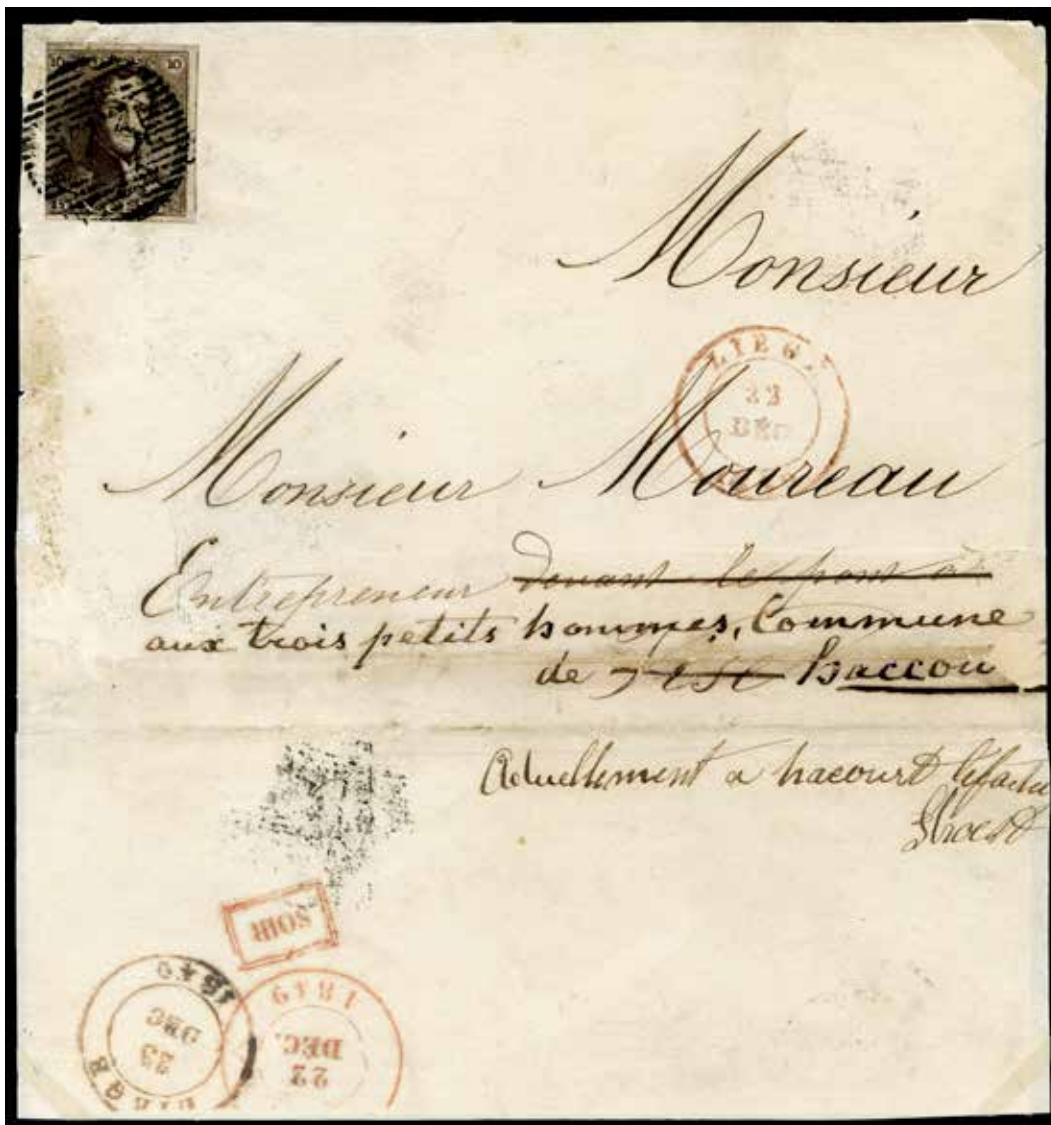 10 10
Monsieur
LIEGE
22
DEC
Monsieur Moureau
Entrepreneur devant le pont à
aux trois petits hommes, Commune
de haccou
Actuellement a hacourt
SOIR
1849
23
DEC
1849
22
DEC.